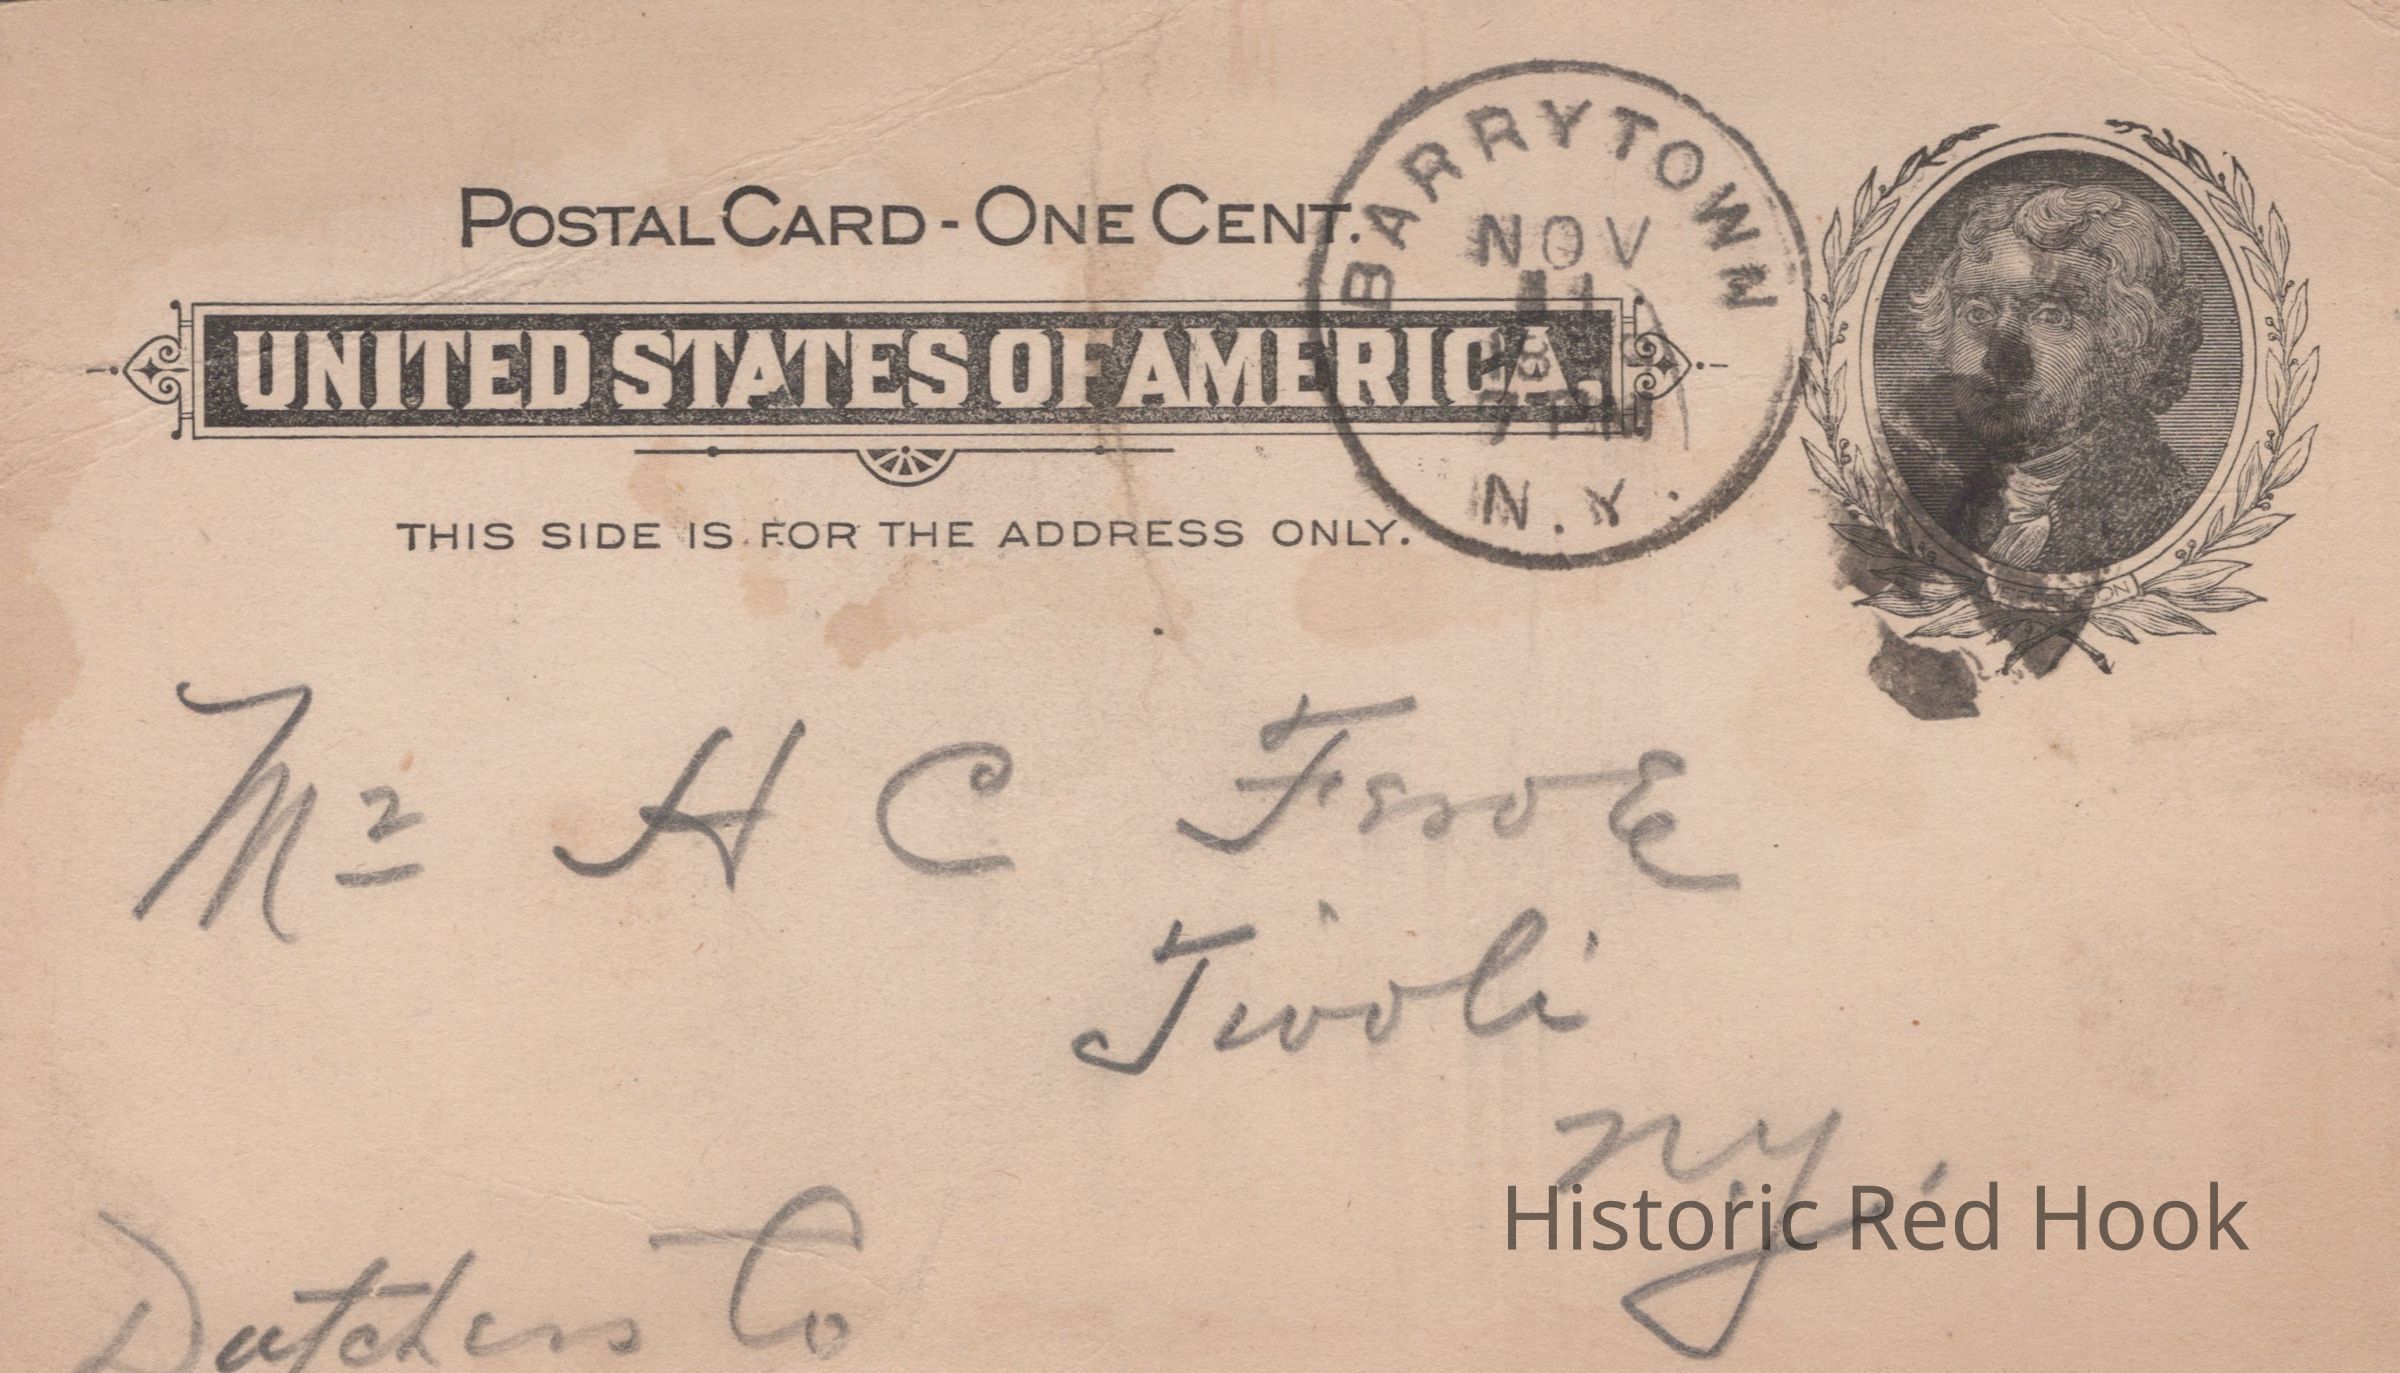 POSTAL CARD - ONE CENT.
UNITED STATES OF AMERICA.
THIS SIDE IS FOR THE ADDRESS ONLY.
BARRYTOWN
NOV
N.Y.
Mr H C Feroe
Tivoli
NY.
Dutchess Co
Historic Red Hook